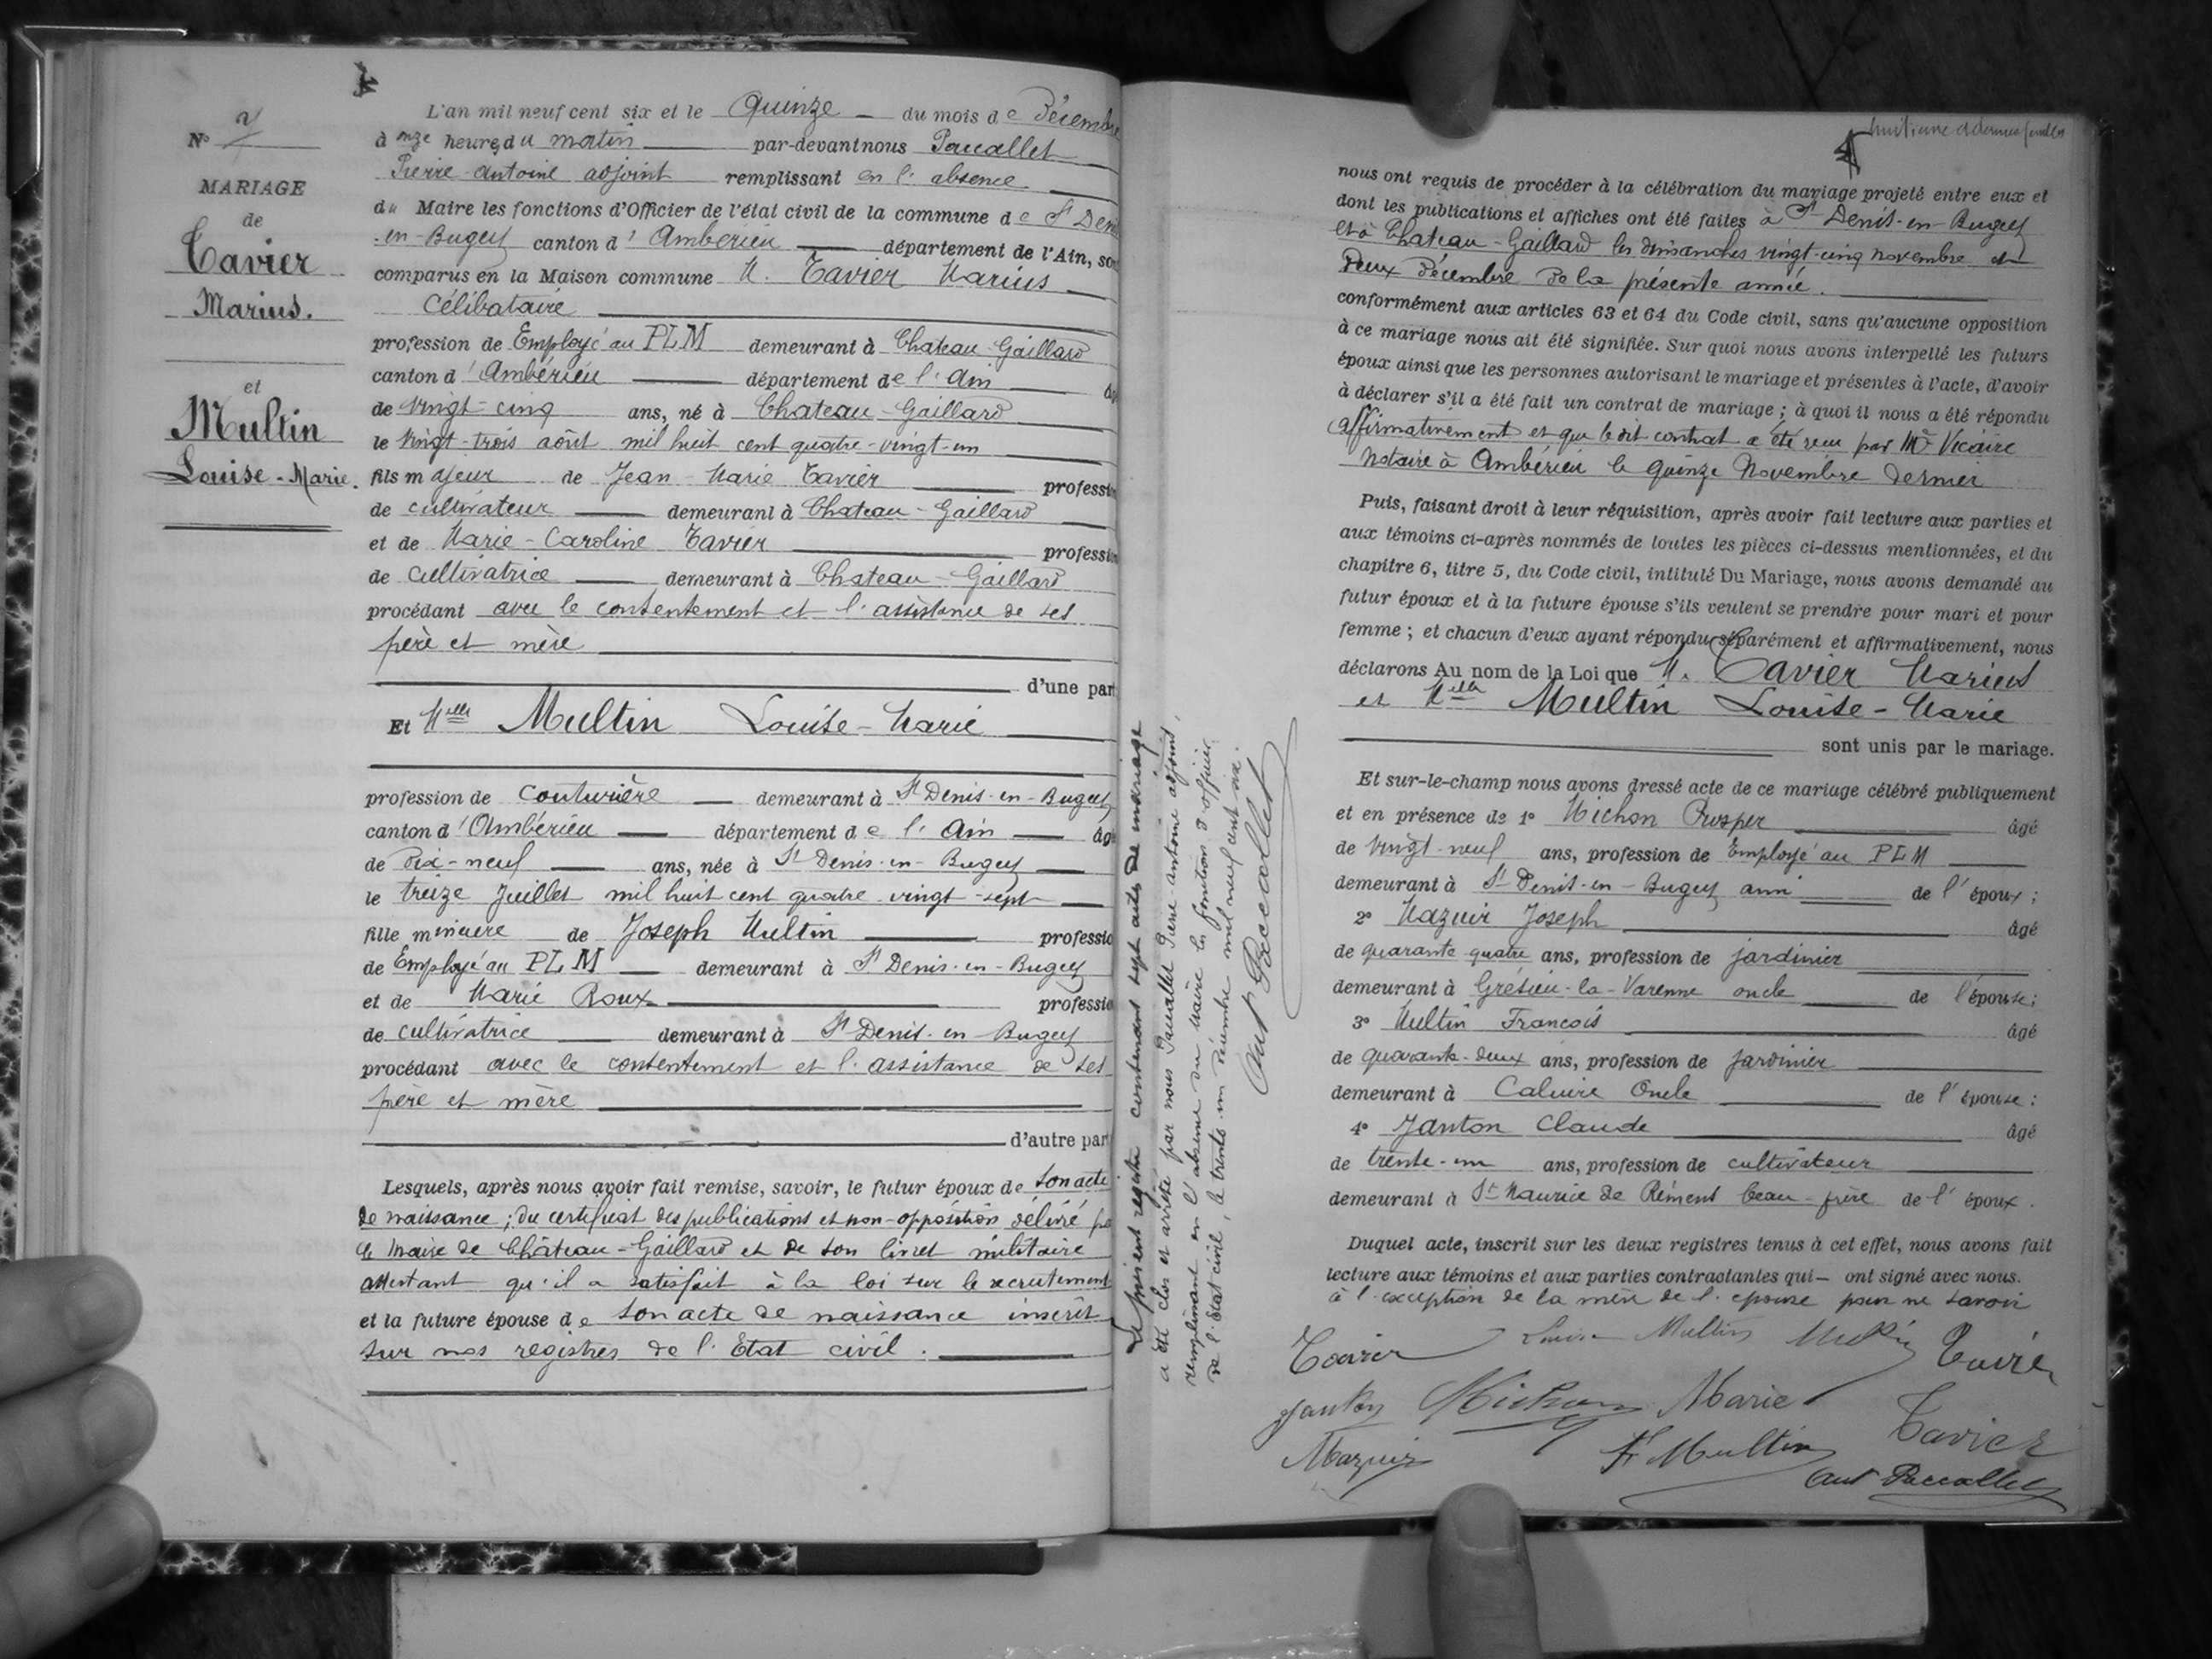 N° 7
MARIAGE
de
Tavier
Marius.
et
Multin
Louise-Marie.
L'an mil neuf cent six et le Quinze — du mois de Décembre
à onze heures du matin par-devant nous Paccallet
Pierre-Antoine adjoint remplissant en l'absence
du Maire les fonctions d'Officier de l'état civil de la commune de St Denis
-en-Bugey canton d'Ambérieu département de l'Ain, sont
comparus en la Maison commune M. Tavier Marius
Célibataire
profession de Employé au PLM demeurant à Chateau-Gaillard
canton d'Ambérieu département de l'Ain âgé
de vingt-cinq ans, né à Chateau-Gaillard
le Vingt-trois août mil huit cent quatre-vingt-un
fils majeur de Jean-Marie Tavier profession
de cultivateur demeurant à Chateau-Gaillard
et de Marie-Caroline Tavier profession
de cultivatrice demeurant à Chateau-Gaillard
procédant avec le consentement et l'assistance de ses
père et mère
d'une part
Et Melle Multin Louise-Marie
profession de couturière demeurant à St Denis-en-Bugey
canton d'Ambérieu département de l'Ain âgée
de dix-neuf ans, née à St Denis-en-Bugey
le treize Juillet mil huit cent quatre vingt-sept
fille mineure de Joseph Multin profession
de Employé au PLM demeurant à St Denis-en-Bugey
et de Marie Roux profession
de cultivatrice demeurant à St Denis-en-Bugey
procédant avec le consentement et l'assistance de ses
père et mère
d'autre part
Lesquels, après nous avoir fait remise, savoir, le futur époux de son acte
de naissance; du certificat des publications et non-opposition délivré par
le Maire de Château-Gaillard et de son livret militaire
attestant qu'il a satisfait à la loi sur le recrutement
et la future épouse de son acte de naissance inscrit
sur nos registres de l'Etat civil.
Le présent registre contenant sept actes de mariage
a été clos et arrêté par nous Paccallet Pierre-antoine adjoint,
remplissant en l'absence du Maire les fonctions d'officier
de l'état civil, le trente un décembre mil neuf cent six.
Ant Paccallet
huitième et dernier feuillet
nous ont requis de procéder à la célébration du mariage projeté entre eux et
dont les publications et affiches ont été faites à St Denis-en-Bugey
et à Chateau-Gaillard les dimanches vingt-cinq novembre et
deux Décembre de la présente année.
conformément aux articles 63 et 64 du Code civil, sans qu'aucune opposition
à ce mariage nous ait été signifiée. Sur quoi nous avons interpellé les futurs
époux ainsi que les personnes autorisant le mariage et présentes à l'acte, d'avoir
à déclarer s'il a été fait un contrat de mariage; à quoi il nous a été répondu
affirmativement et que le dit contrat a été reçu par Me Vicaire
notaire à Ambérieu le quinze Novembre dernier
Puis, faisant droit à leur réquisition, après avoir fait lecture aux parties et
aux témoins ci-après nommés de toutes les pièces ci-dessus mentionnées, et du
chapitre 6, titre 5, du Code civil, intitulé Du Mariage, nous avons demandé au
futur époux et à la future épouse s'ils veulent se prendre pour mari et pour
femme; et chacun d'eux ayant répondu séparément et affirmativement, nous
déclarons Au nom de la Loi que M. Tavier Marius
et Melle Multin Louise-Marie
sont unis par le mariage.
Et sur-le-champ nous avons dressé acte de ce mariage célébré publiquement
et en présence de 1° Michon Prosper âgé
de vingt-neuf ans, profession de Employé au PLM
demeurant à St Denis-en-Bugey ami de l'époux;
2° Mazuir Joseph âgé
de quarante quatre ans, profession de jardinier
demeurant à Grésieu-la-Varenne oncle de l'épouse;
3° Multin Francois âgé
de quarante-deux ans, profession de jardinier
demeurant à Caluire Oncle de l'épouse:
4° Janton Claude âgé
de trente-un ans, profession de cultivateur
demeurant à St Maurice de Rémens beau-frère de l'époux.
Duquel acte, inscrit sur les deux registres tenus à cet effet, nous avons fait
lecture aux témoins et aux parties contractantes qui— ont signé avec nous.
à l'exception de la mère de l'épouse pour ne savoir
Tavier Louise Multin Multin Tavier
Janton Michon Marie Tavier
Mazuir F Multin
Ant Paccallet